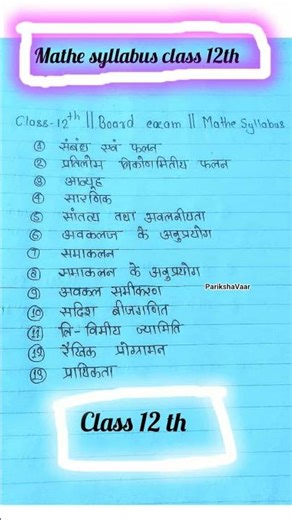 Mathe syllabus class 12th
Class-12th || Board exam || Mathe Syllabus
① संबंध एवं फलन
② प्रतिलोम त्रिकोणमितीय फलन
③ आव्यूह
④ सारणिक
⑤ सांतत्य तथा अवकलनीयता
⑥ अवकलज के अनुप्रयोग
⑦ समाकलन
⑧ समाकलन के अनुप्रयोग
⑨ अवकल समीकरण
ParikshaVaar
⑩ सदिश बीजगणित
⑪ त्रि-विमीय ज्यामिति
⑫ रैखिक प्रोग्रामन
⑬ प्रायिकता
Class 12 th